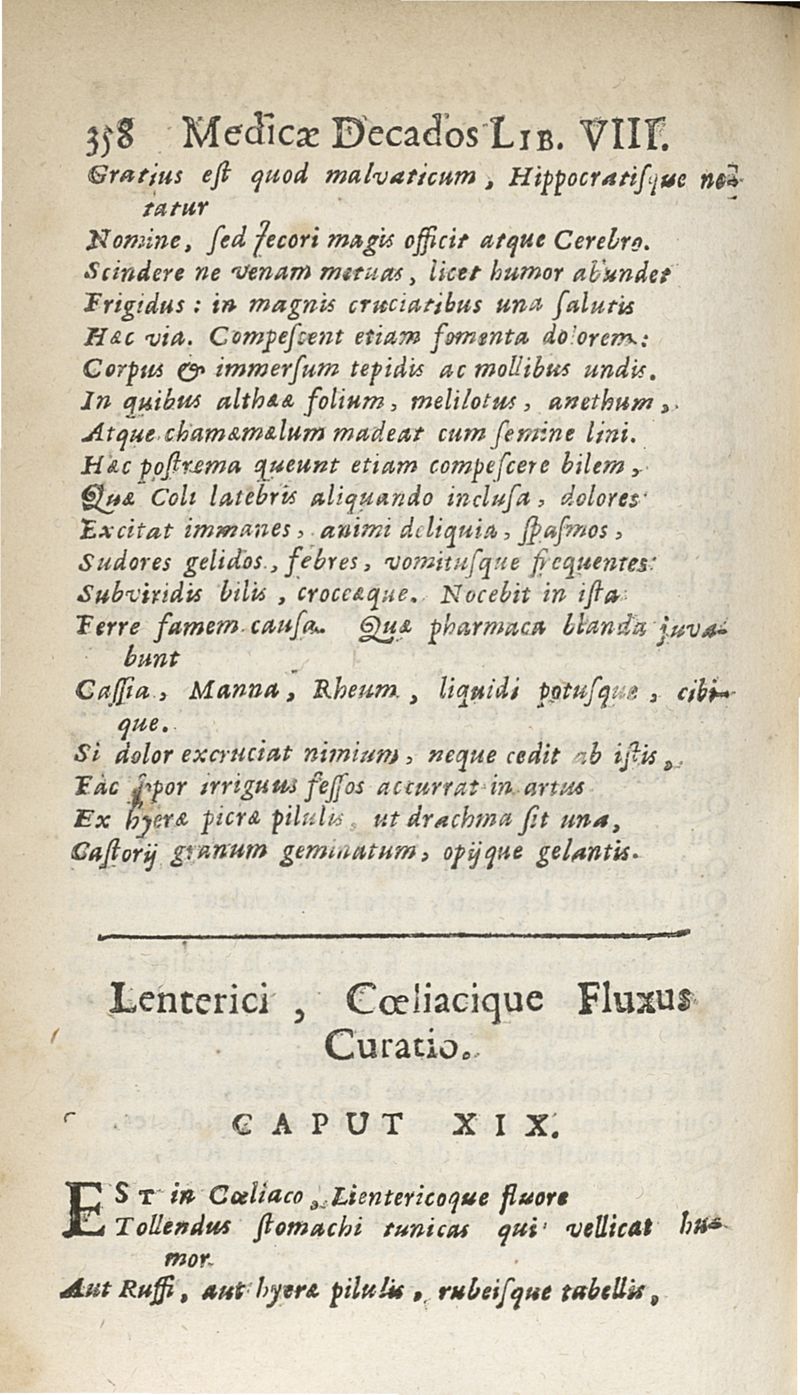 358 Medicæ Decados LIB. VIII.
Gratius est quod malvaticum, Hippocratisque no-
tatur
Nomine, sed Jecori magis officit atque Cerebro.
Scindere ne venam metuas, licet humor abundet
Frigidus: in magnis cruciatibus una salutis
Hæc via. Compescent etiam fomenta dolorem:
Corpus & immersum tepidis ac mollibus undis.
In quibus althææ folium, melilotus, anethum,
Atque chamæmælum madeat cum semine lini.
Hæc postrema queunt etiam compescere bilem,
Quæ Coli latebris aliquando inclusa, dolores
Excitat immanes, animi deliquia, spasmos,
Sudores gelidos, febres, vomitusque frequentes
Subviridis bilis, croceæque. Nocebit in ista
Ferre famem causa. Quæ pharmaca blanda juva-
bunt
Cassia, Manna, Rheum, liquidi potusque, cibi-
que.
Si dolor excruciat nimium, neque cedit ab istis,
Fac sopor irriguus fessos accurrat in artus
Ex hyeræ picræ pilulis, ut drachma sit una,
Castorij granum geminatum, opijque gelantis.
Lenterici, Cœliacique Fluxus
Curatio.
CAPUT XIX.
EST in Cœliaco, Lientericoque fluore
Tollendus stomachi tunicas qui vellicat hu-
mor
Aut Ruffi, aut hyeræ pilulis, rubeisque tabellis,